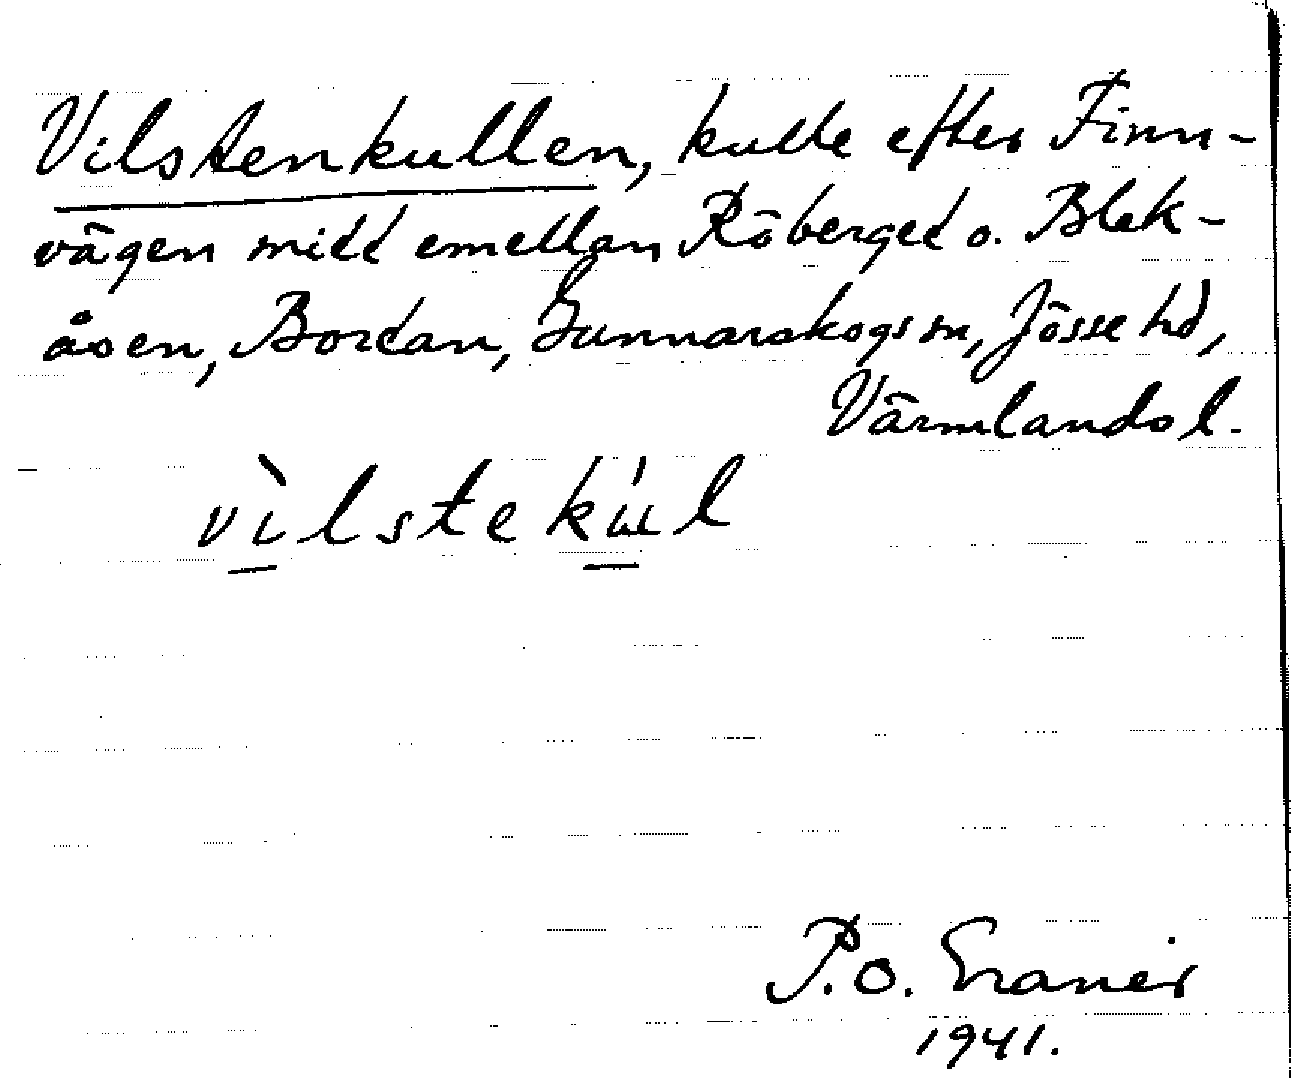 Vilstenkullen, kulle efter Finn-
vägen mitt emellan Röberget o. Blek-
åsen, Bortan, Gunnarskogs sn, Jösse hd,
Värmlands l.
vìlstekúl
P.O.
1941.